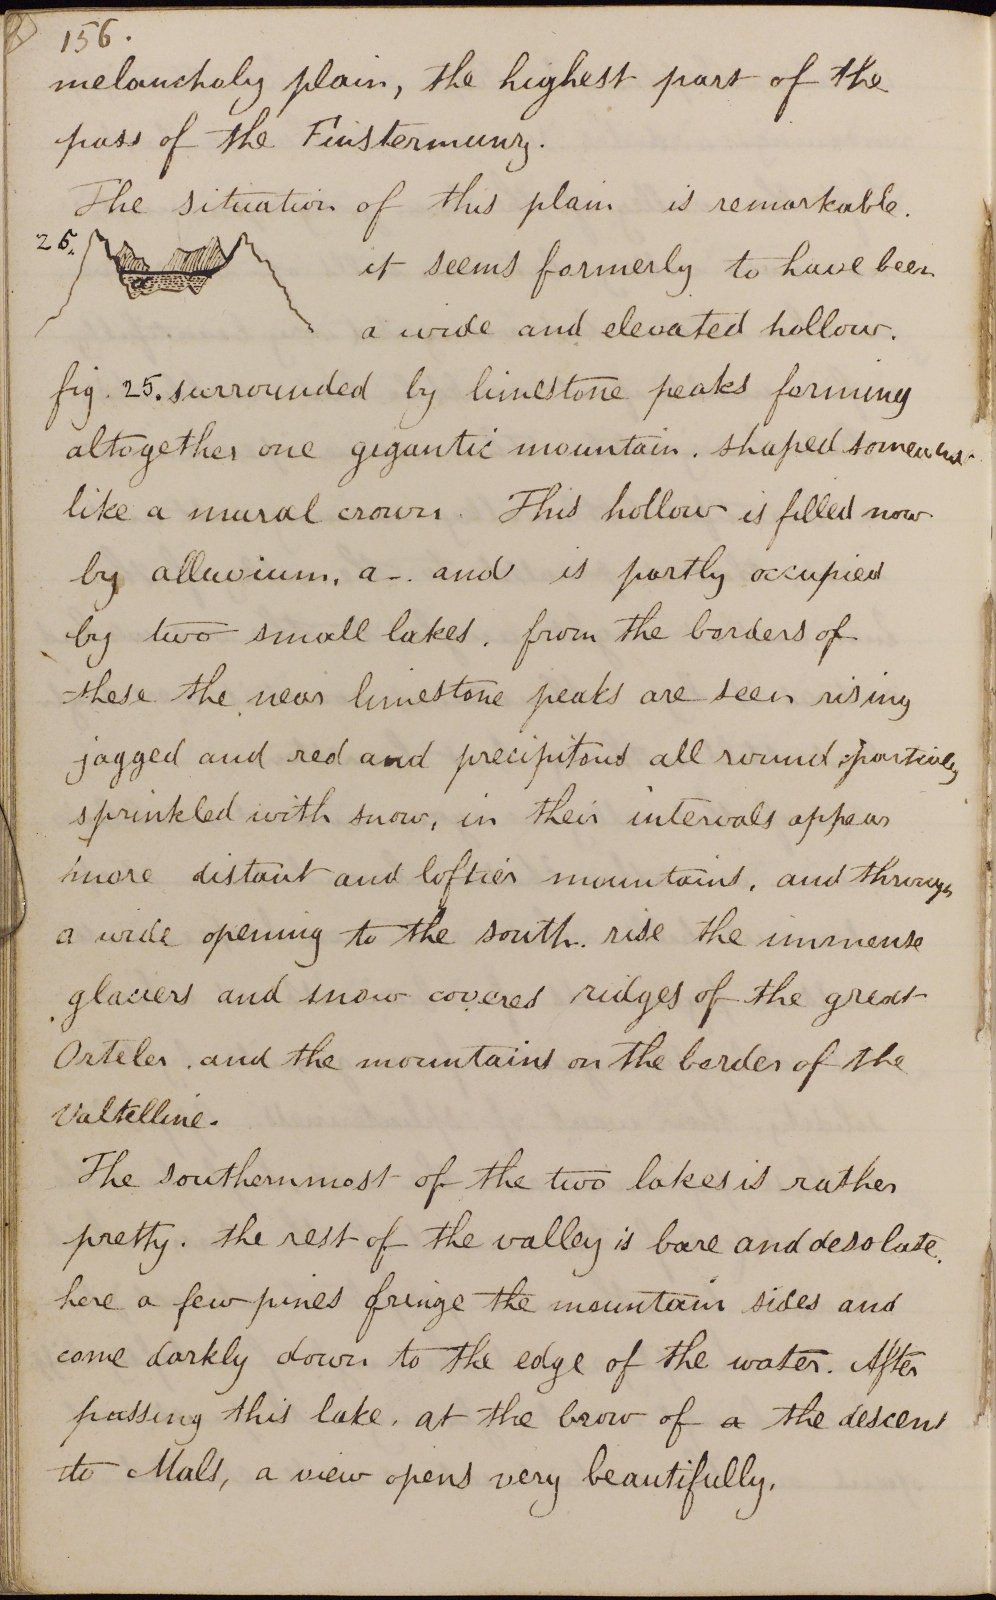 156.
melancholy plain, the highest part of the
pass of the Finstermunz.
The situation of this plain is remarkable.
25.
it seems formerly to have been
a wide and elevated hollow.
fig. 25. surrounded by limestone peaks forming
altogether one gigantic mountain. shaped somewhat
like a mural crown. This hollow is filled now
by alluvium, a-. and is partly occupied
by two small lakes. from the borders of
these the near limestone peaks are seen rising
jagged and red and precipitous all round, partially
sprinkled with snow, in their intervals appear
more distant and loftier mountains, and through
a wide opening to the south. rise the immense
glaciers and snow covered ridges of the great
Orteler. and the mountains on the border of the
Valtelline.
The southernmost of the two lakes is rather
pretty. the rest of the valley is bare and desolate.
here a few pines fringe the mountain sides and
come darkly down to the edge of the water. After
passing this lake. at the brow of a the descent
to Mals, a view opens very beautifully.